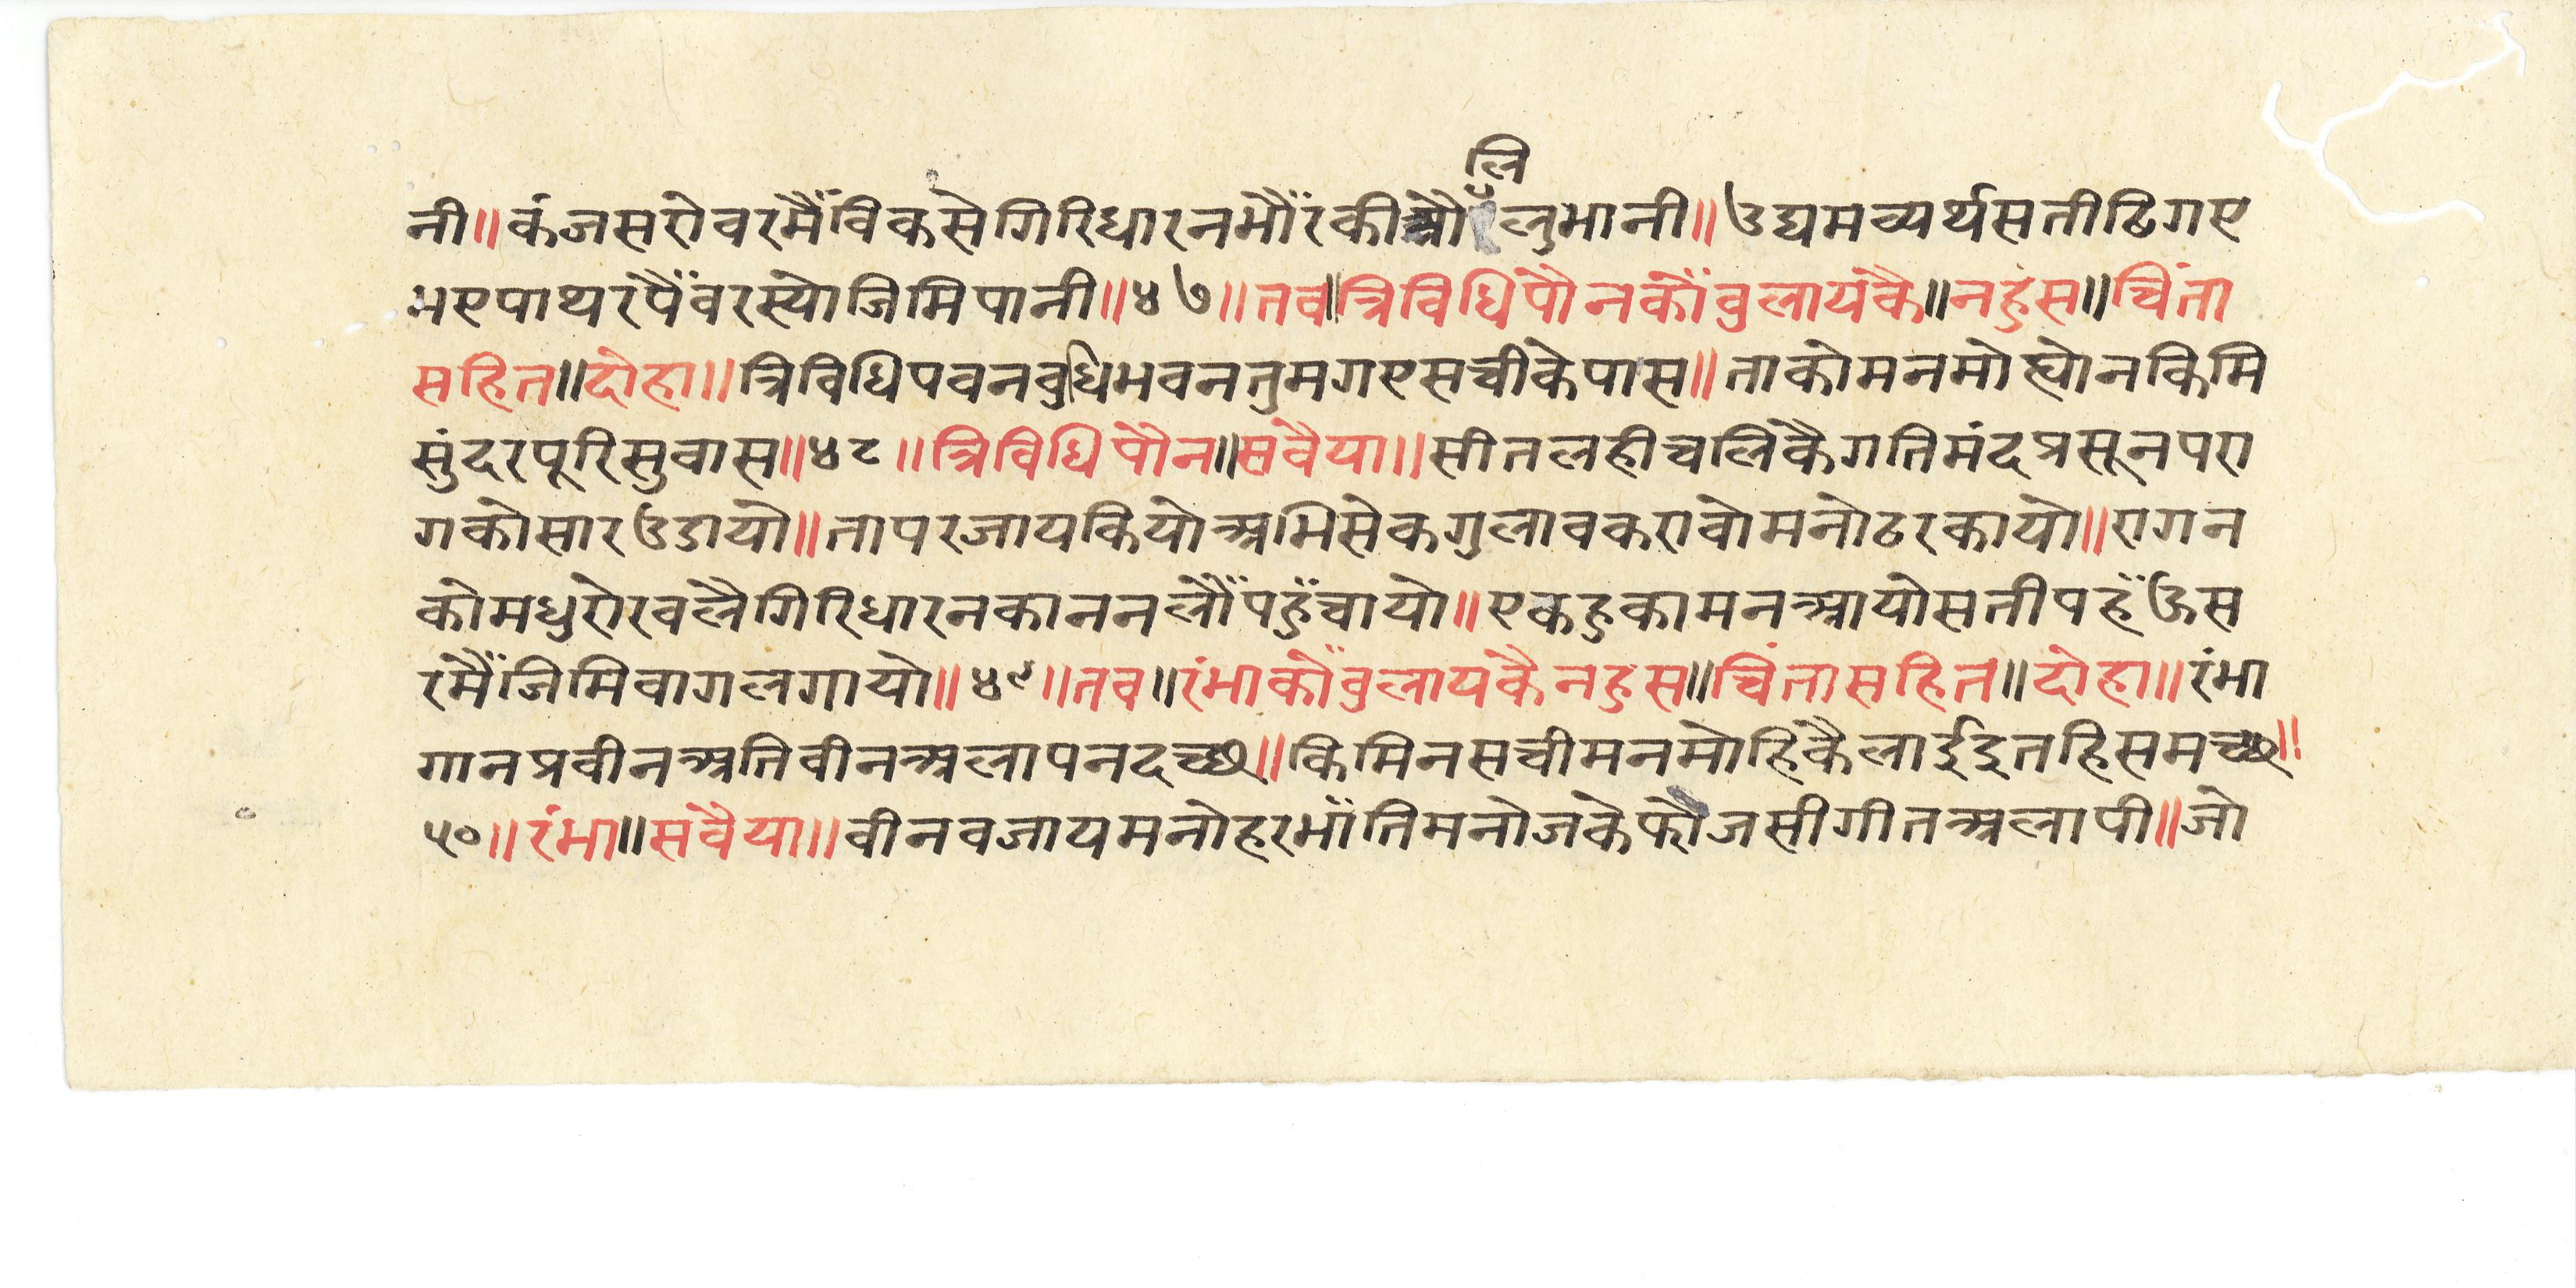 लि
नी॥कंजसरोवरमैंविकसेगिरिधारनभौंरकीऔलुभानी॥उद्यमव्यर्थसतीढिगए
भएपाथरपैंवरस्योजिमिपानी॥४७॥तव॥त्रिविधिपौनकौंवुलायकै॥नहुस॥चिंता
सहित॥दोहा॥त्रिविधिपवनवुधिभवनतुमगएसचीकेपास॥ताकोमनमोह्योनकिमि
सुंदरपूरिसुवास॥४८॥त्रिविधिपौन॥सवैया॥सीतलहीचलिकैगतिमंदप्रसूनपरा
गकोसारउडायो॥तापरजायकियोअभिसेकगुलावकरावोमनोढरकायो॥रागन
कोमधुरोरवलैगिरिधारनकाननलौंपहुंचायो॥एकहुकामनआयोसतीपहँऊस
रमैंजिमिवागलगायो॥४९॥तव॥रंभाकौंवुलायकैनहुस॥चिंतासहित॥दोहा॥रंभा
गानप्रवीनअतिवीनअलापनदच्छ॥किमिनसचीमनमोहिकैलाईद्रुतहिसमच्छ॥
५०॥रंभा॥सवैया॥वीनवजायमनोहरभाँतिमनोजकेफौजसीगीतअलापी॥जो